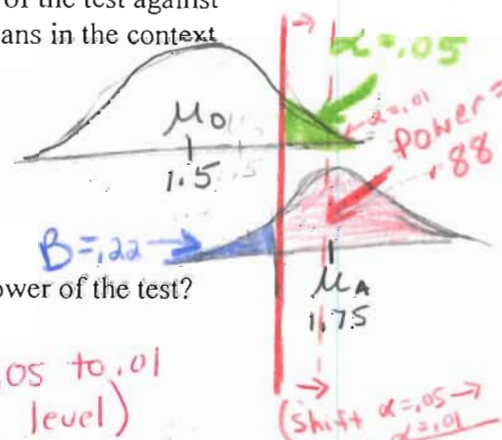 of the test against
ans in the context
→
α=.05
α=.01
μ₀
1.5
Power=
.88
B=.22 →
ower of the test?
μA
1.75
.05 to .01
level)
→
(shift α=.05→
α=.01